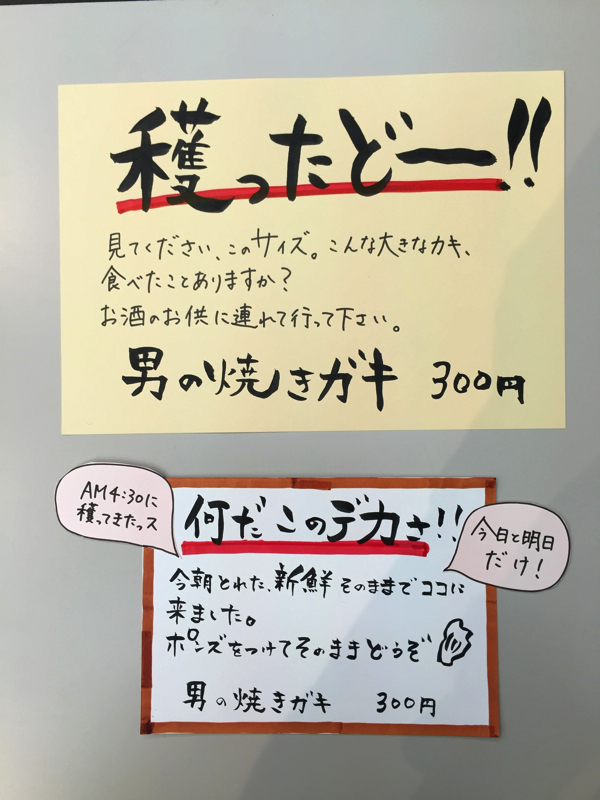 穫ったどー!!
見てください、このサイズ。こんな大きなカキ、
食べたことありますか?
お酒のお供に連れて行って下さい。
男の焼きガキ 300円
AM4:30に
穫ってきたっス
何だこのデカさ!!
今日と明日
だけ!
今朝とれた、新鮮そのままでココに
来ました。
ポンズをつけてそのままどうぞ
男の焼きガキ 300円